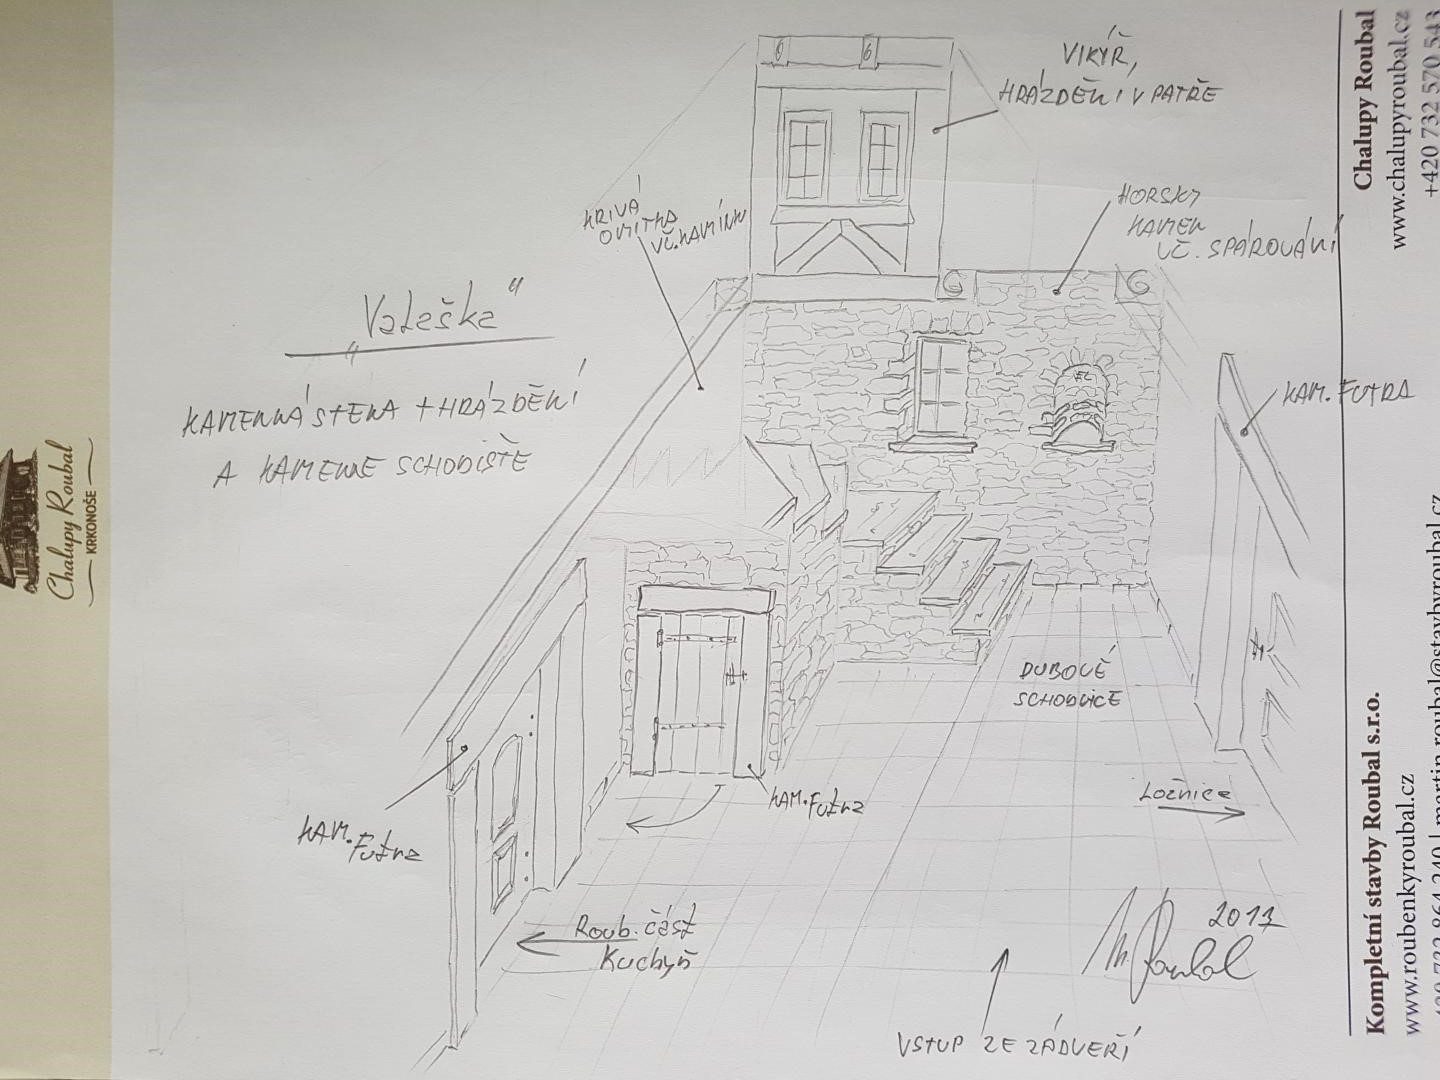 VIKÝŘ,
HRÁZDĚNÍ V PATŘE
KŘIVÁ
OMÍTKA
VČ. KAMÍNKU
HORSKÝ
KAMEN
VČ. SPÁROVÁNÍ
„Valeška“
KAMENNÁ STĚNA + HRÁZDĚNÍ
A KAMENNÉ SCHODIŠTĚ
KAM. FUTRA
EL
DUBOVÉ
SCHODNICE
Ložnice
KAM. Futra
KAM. Futra
Roub. část
Kuchyň
VSTUP ZE ZÁDVEŘÍ
M. Roubal 2017
Chalupy Roubal
KRKONOŠE
Chalupy Roubal
www.chalupyroubal.cz
+420 732 570 543
Kompletní stavby Roubal s.r.o.
www.roubenkyroubal.cz
420 732 864 240 | martin.roubal@stavbyroubal.cz